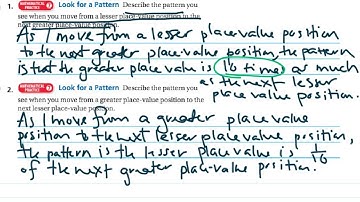 1. MATHEMATICAL PRACTICE 7 Look for a Pattern Describe the pattern you
see when you move from a lesser place-value position to the
next greater place-value position.
As I move from a lesser place value position
to the next greater place-value position, the pattern
is that the greater place value is 10 times as much
as the next lesser
place value position.
2. MATHEMATICAL PRACTICE 7 Look for a Pattern Describe the pattern you
see when you move from a greater place-value position to the
next lesser place-value position.
As I move from a greater place value
position to the next lesser place value position,
the pattern is the lesser place value is 1/10
of the next greater place-value position.